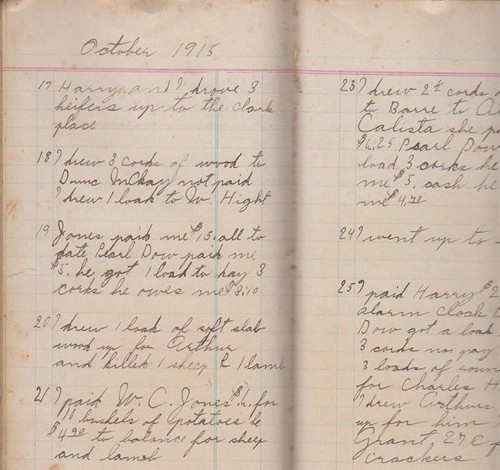 October 1913
17 Harry and I drove 3
heifers up to the Clark
place
18 I drew 3 cords of wood to
Dunc McKay not paid
I drew 1 load to W. Hight
19 Jones paid me $15. all to
date Pearl Dow paid me
$5. he got 1 load to day 3
cords he owes me $3.10
20 I drew 1 load of soft slab
wood up for Arthur
and killed 1 sheep & 1 lamb
21 I paid W. C. Jones for
bushels of potatoes he
$4.90 to balance for sheep
and lamb
23 I drew 2 cords
to Barre to
Calista she
$6.25 Pearl Dow
load 3 cords he
me $5. cash he
me $4.70
24 I went up to
25 I paid Harry
alarm clock
Dow got a load
3 cords not pay
3 loads of
for Charles H
I drew Arthurs
up for him
Grant, 27¢
crackers